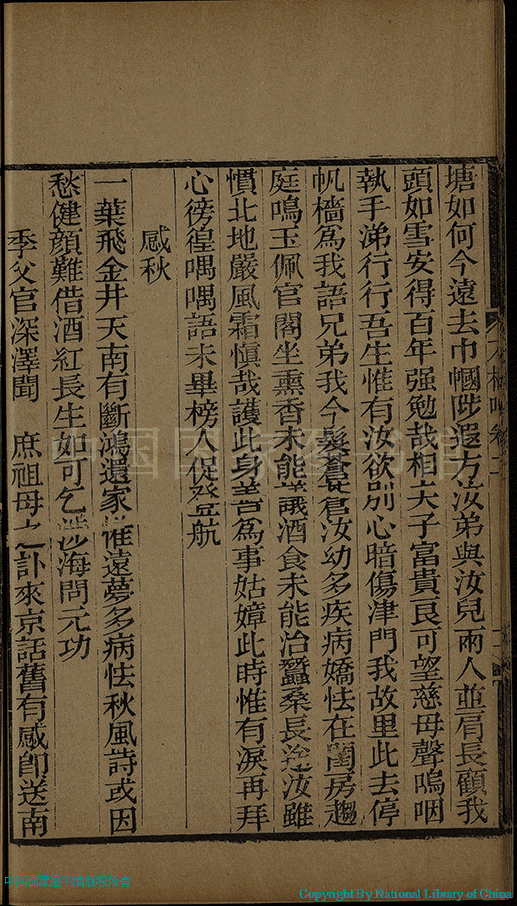 塘如何今遠去巾幗陟遐方汝弟與汝兒兩人並肩長顧我
頭如雪安得百年强勉哉相夫子富貴良可望慈母聲嗚咽
執手涕行行吾生惟有汝欲別心暗傷津門我故里此去停
帆檣為我語兄弟我今鬢蒼蒼汝幼多疾病嬌怯在閨房趨
庭鳴玉佩官閣坐熏香未能議酒食未能治蠶桑長途汝雖
慣北地嚴風霜愼哉護此身善為事姑嫜此時惟有淚再拜
心徬徨喁喁語未畢榜人促發航
感秋
一葉飛金井天南有斷鴻還家惟遠夢多病怯秋風詩或因
愁健顏難借酒紅長生如可乞涉海問元功
季父官深澤聞 庶祖母之訃來京話舊有感即送南
中国国家图书馆
Copyright By National Library of China